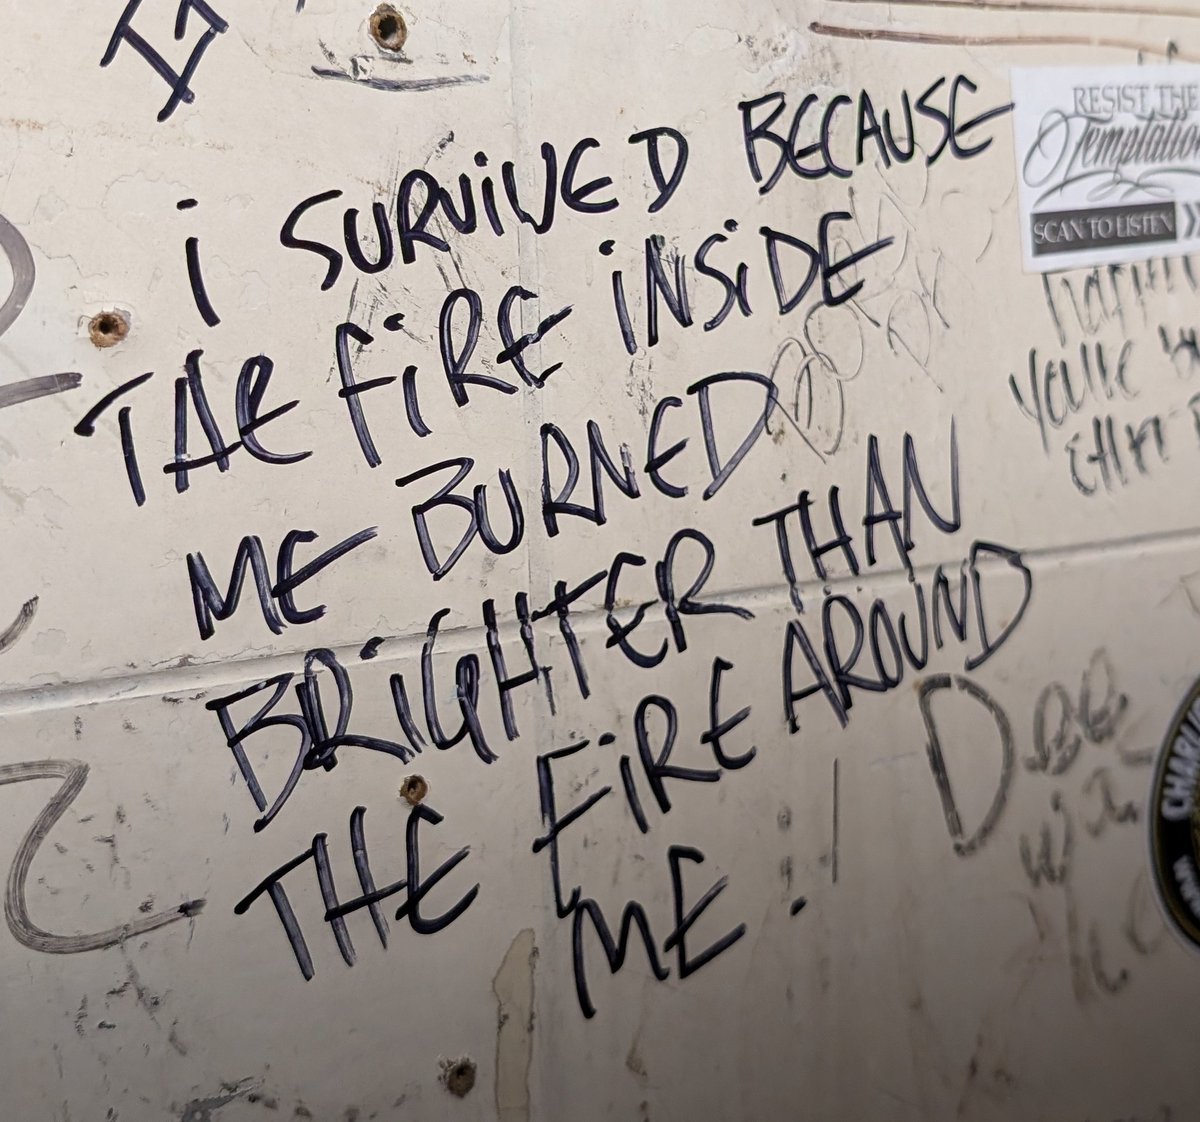 i SURViVED BECAUSE
THE FiRE iNSiDE
ME BURNED
BRiGHTER THAN
THE FiRE AROUND
ME.
RESIST THE
Temptation
SCAN TO LISTEN